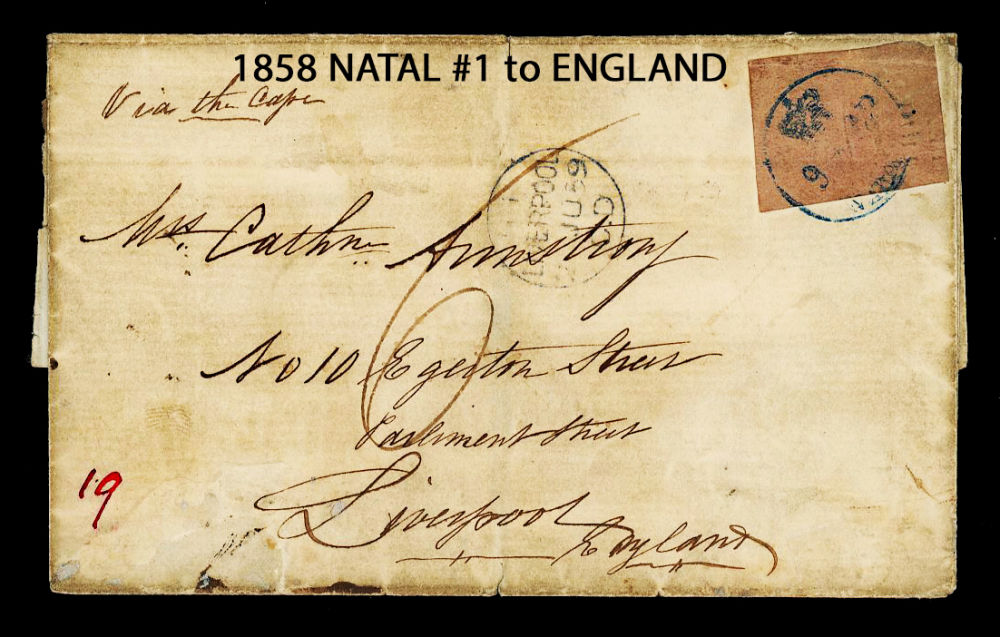 1858 NATAL #1 to ENGLAND
Via the Cape
LIVERPOOL
JU 59
6
9
Mrs. Cathne Armstrong
No 10 Egerton Street
Parliment Street
Liverpool
England
19